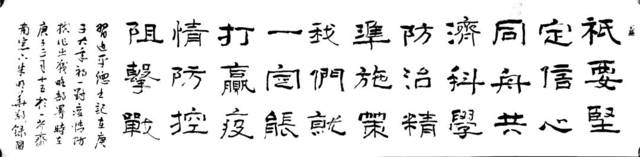 祇要堅
定信心
同舟共
濟科學
防治精
準施策
我們就
一定能
打贏疫
情防控
阻擊戰
習近平總書記在庚
子大年初一對疫情防
控作出戰略部署時
庚子二月十五於齋